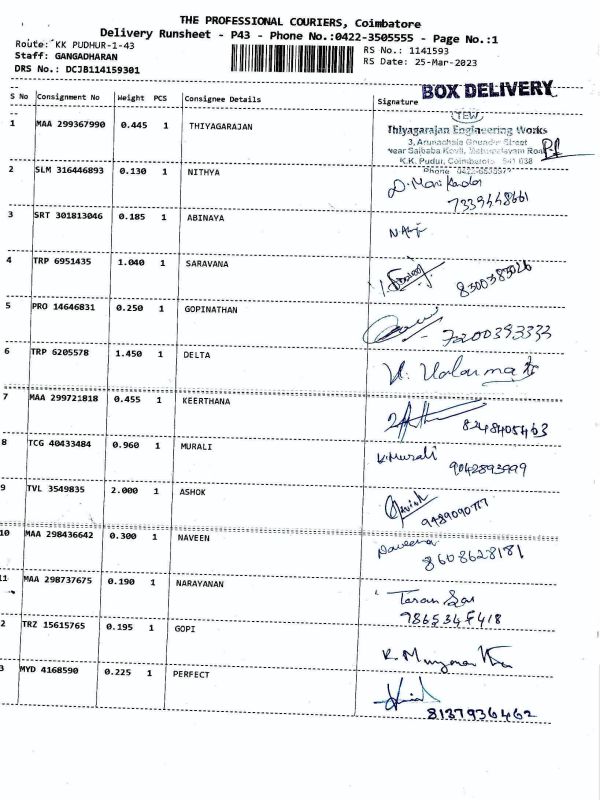 THE PROFESSIONAL COURIERS, Coimbatore
Delivery Runsheet - P43 - Phone No.:0422-3505555 - Page No.:1
Route: KK PUDHUR-1-43 RS No.: 1141593
Staff: GANGADHARAN RS Date: 25-Mar-2023
DRS No.: DCJB114159301
BOX DELIVERY
S No Consignment No Weight PCS Consignee Details Signature
TEW
1 MAA 299367990 0.445 1 THIYAGARAJAN Thiyagarajan Engineering Works
3, Arunachala Gounder Street
Near Saibaba Kovil, Road
K.K. Pudur, Coimbatore 641 038
Phone
2 SLM 316446893 0.130 1 NITHYA
7339448661
3 SRT 301813046 0.185 1 ABINAYA
4 TRP 6951435 1.040 1 SARAVANA 8300383026
5 PRO 14646831 0.250 1 GOPINATHAN 7200393333
6 TRP 6205578 1.450 1 DELTA
7 MAA 299721818 0.455 1 KEERTHANA 8248405463
8 TCG 40433484 0.960 1 MURALI K.Murali
9042893999
9 TVL 3549835 2.000 1 ASHOK
10 MAA 298436642 0.300 1 NAVEEN Naveena
8608628181
11 MAA 298737675 0.190 1 NARAYANAN
2 TRZ 15615765 0.195 1 GOPI
3 MYD 4168590 0.225 1 PERFECT
8137936462